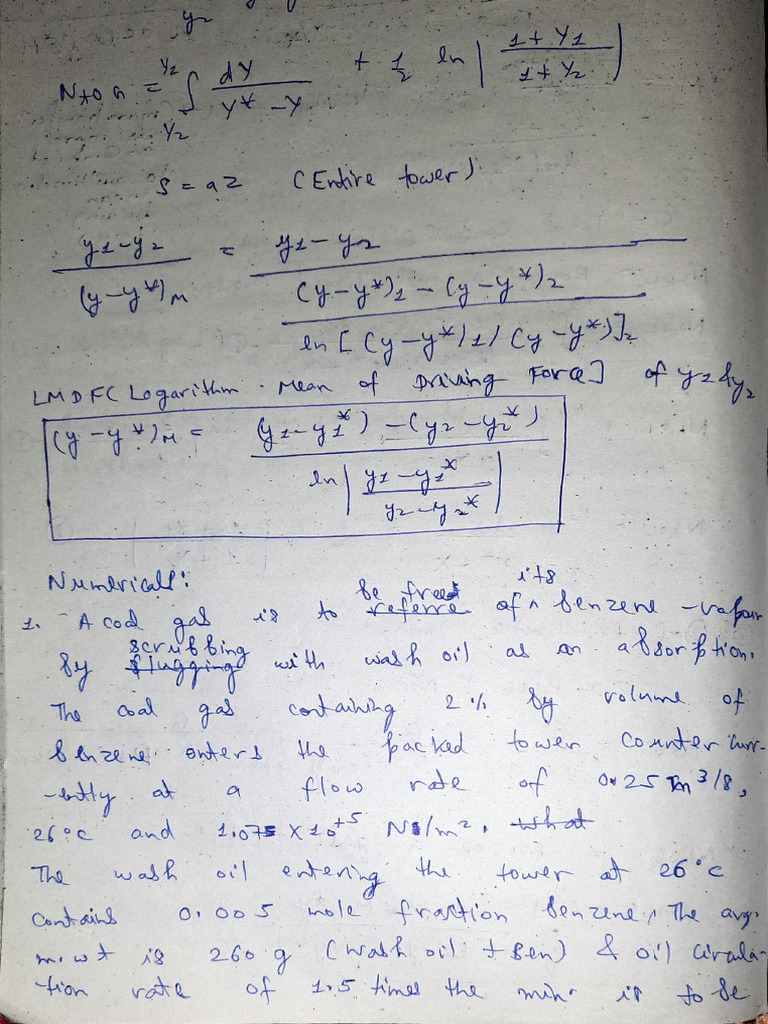 y2
NtOG = Y2 ∫ Y2 dY / Y* - Y + 1/2 ln | 1 + Y1 / 1 + Y2 |
S = aZ (Entire tower)
y1 - y2 / (y - y*)M = y1 - y2 / (y - y*)1 - (y - y*)2 / ln [ (y - y*)1 / (y - y*)]2
LMDFC Logarithm Mean of Driving Force] of y1 & y2
(y - y*)M = (y1 - y1*) - (y2 - y2*) / ln | y1 - y1* / y2 - y2* |
Numericals:
1. A coal gas is to be free of its benzene - vapour
by scrubbing with wash oil as an absorption.
The coal gas containing 2% by volume of
benzene enters the packed tower counter curr-
-ently at a flow rate of 0.25 m3/s,
26°c and 1.075 x 10+5 N/m2. what
The wash oil entering the tower at 26°c
contains 0.005 mole fraction benzene, The avg.
m.wt is 260 g (wash oil + Ben) & oil circula-
tion rate of 1.5 times the min. is to be